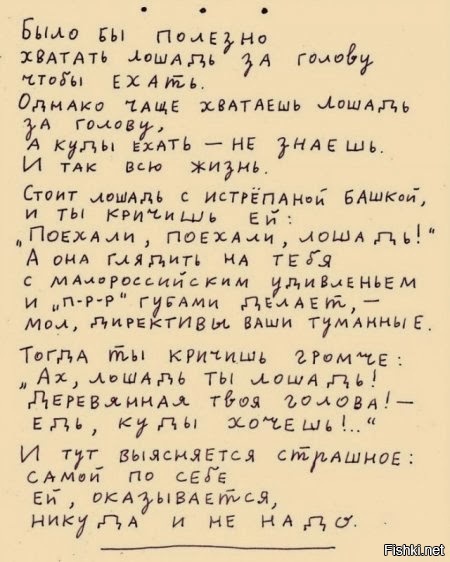 • • •
Было бы полезно
хватать лошадь за голову
чтобы ехать.
Однако чаще хватаешь лошадь
за голову,
а куды ехать — не знаешь.
И так всю жизнь.
Стоит лошадь с истрёпаной башкой,
и ты кричишь ей:
„Поехали, поехали, лошадь!“
А она глядить на тебя
с малороссийским удивленьем
и „п-р-р“ губами делает, —
мол, директивы ваши туманные.
Тогда ты кричишь громче:
„Ах, лошадь ты лошадь!
Деревянная твоя голова! —
Едь, куды хочешь!..“
И тут выясняется страшное:
самой по себе
ей, оказывается,
никуда и не надо.
Fishki.net